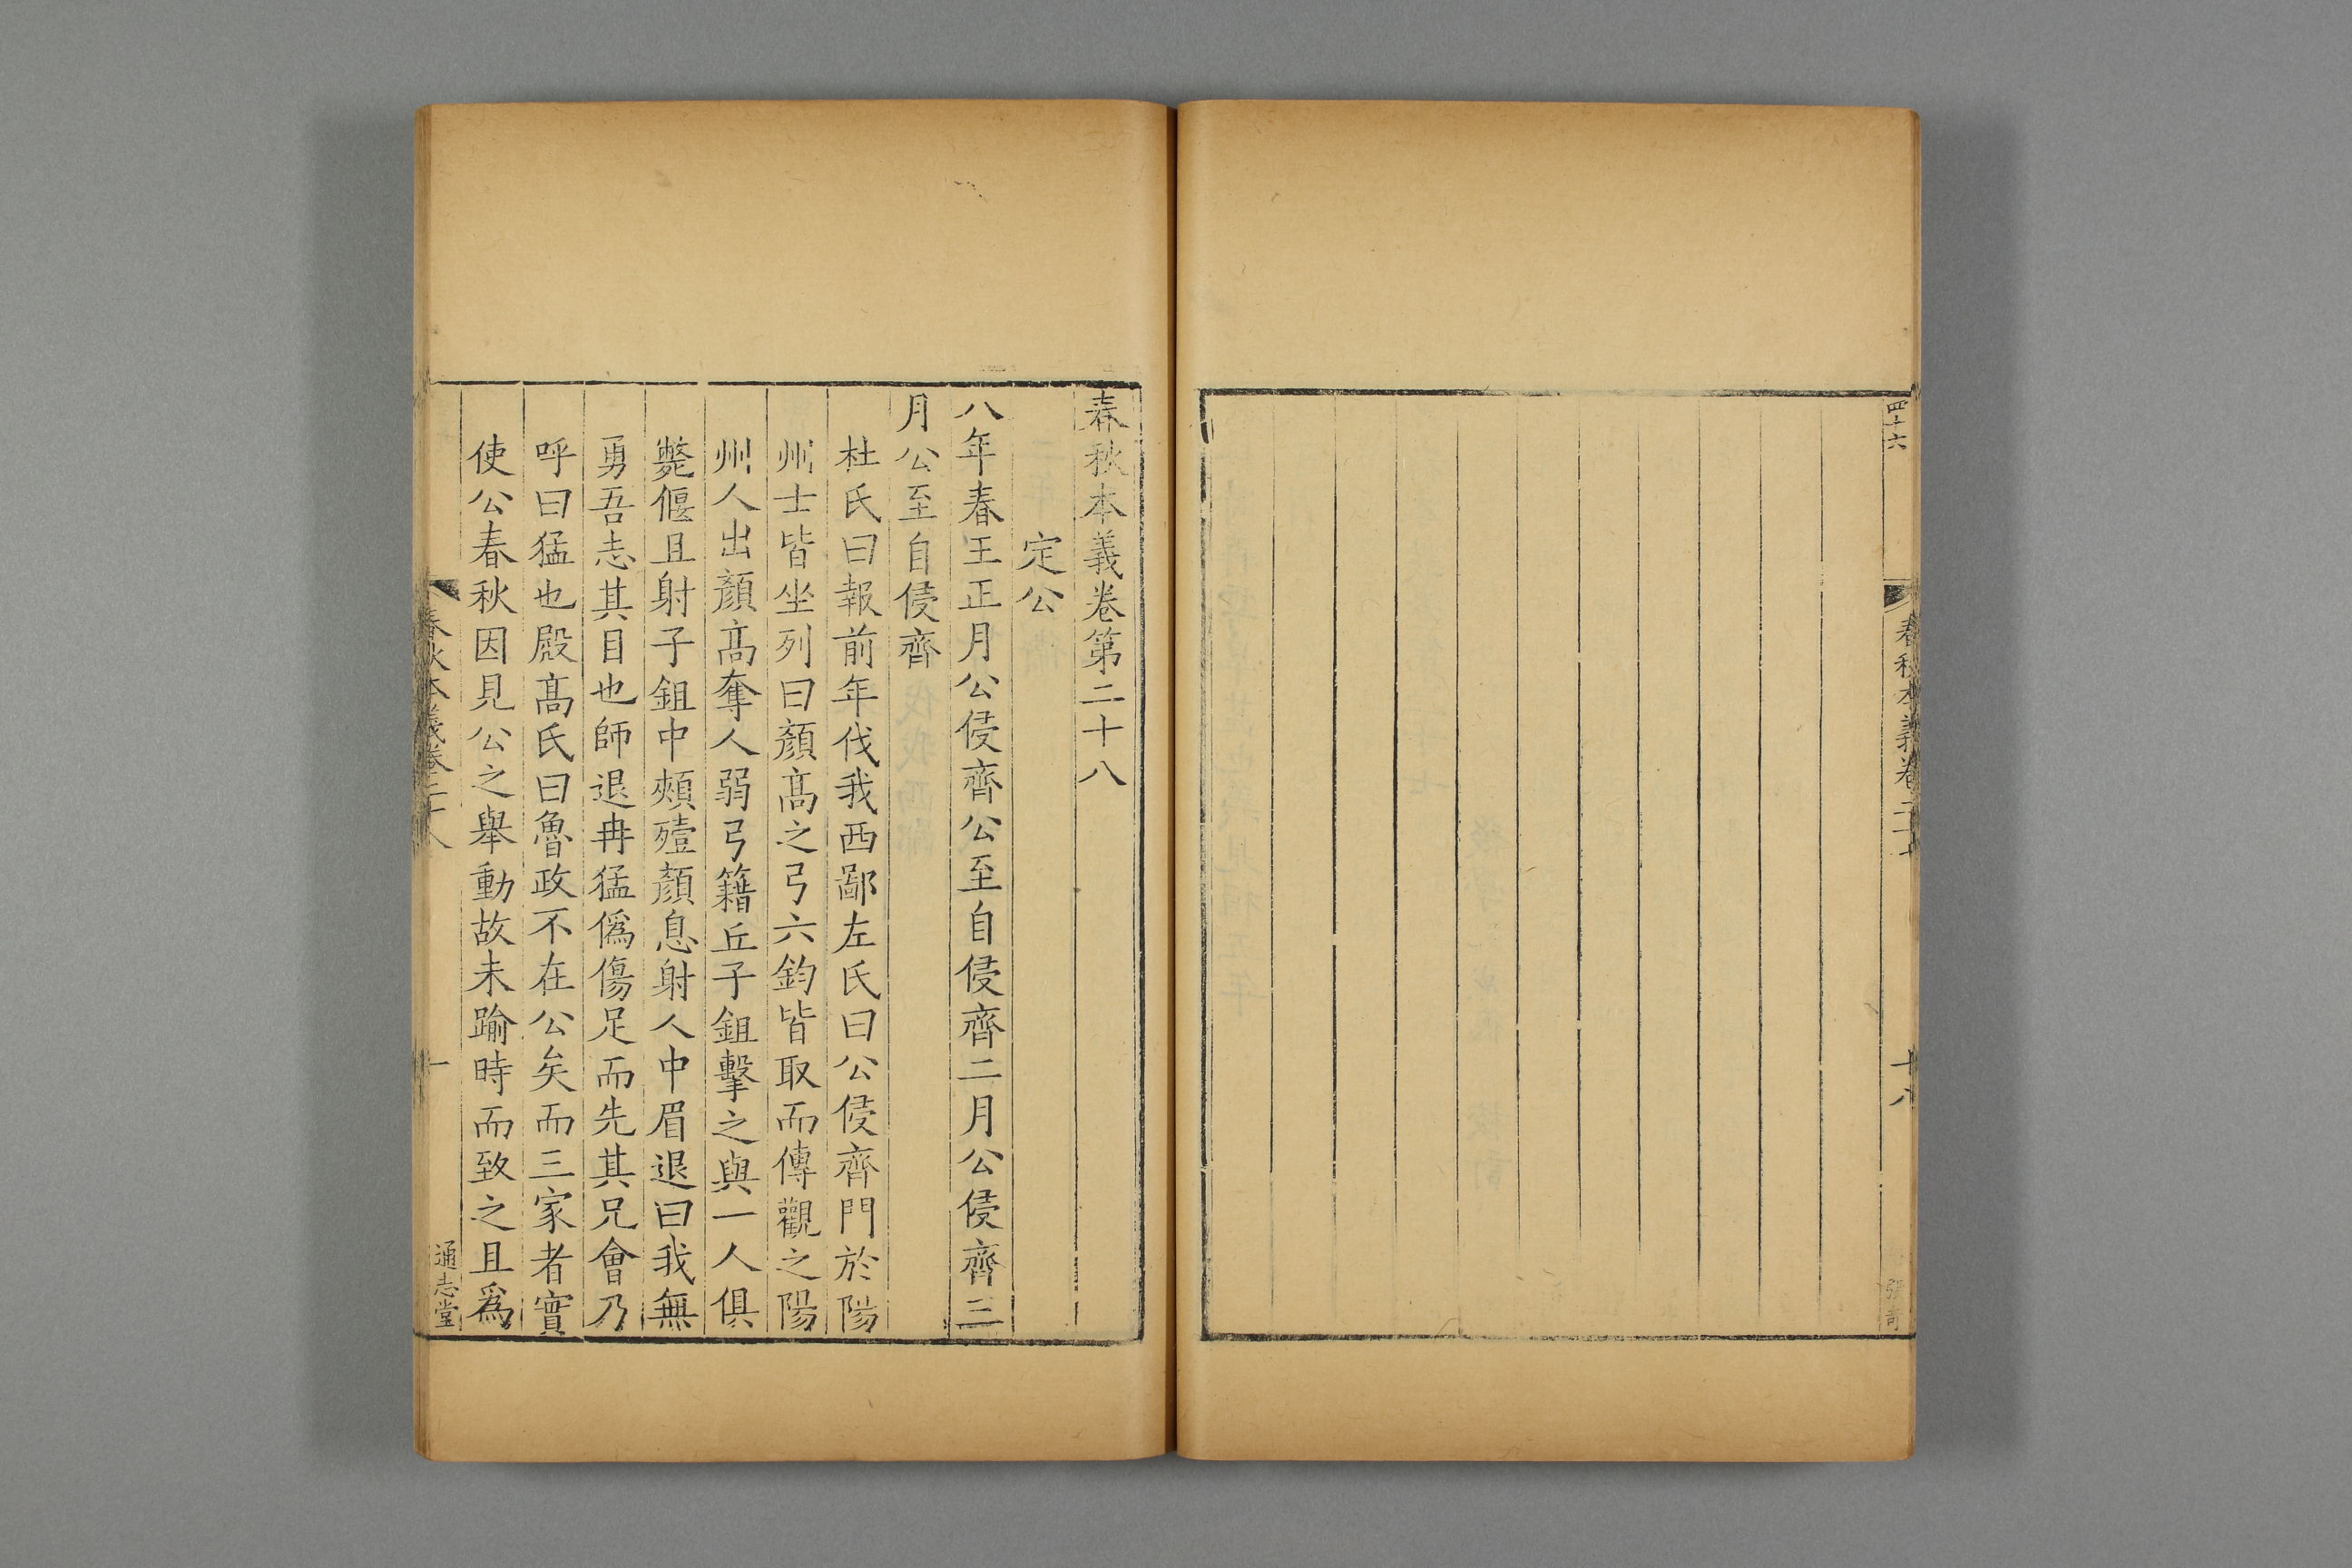 四十六
春秋本義卷二十七
十八
春秋本義卷第二十八
定公
八年春王正月公侵齊公至自侵齊二月公侵齊三
月公至自侵齊
杜氏曰報前年伐我西鄙左氏曰公侵齊門於陽
州士皆坐列曰顏高之弓六鈞皆取而傳觀之陽
州人出顏高奪人弱弓籍丘子鉏擊之與一人俱
斃偃且射子鉏中頰殪顏息射人中眉退曰我無
勇吾志其目也師退冉猛偽傷足而先其兄會乃
呼曰猛也殿高氏曰魯政不在公矣而三家者實
使公春秋因見公之舉動故未踰時而致之且爲
春秋本義卷二十八
一
通志堂